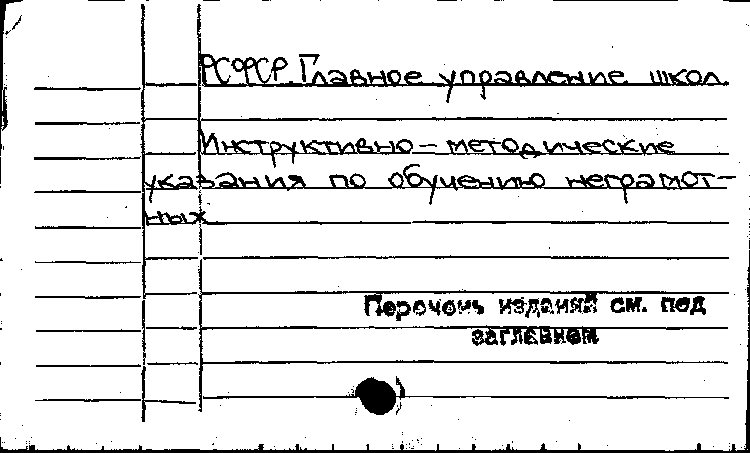 РСФСР. Главное управление школ.
Инструктивно-методические
указания по обучению неграмот-
ных
Перечень изданий см. под
заглавием